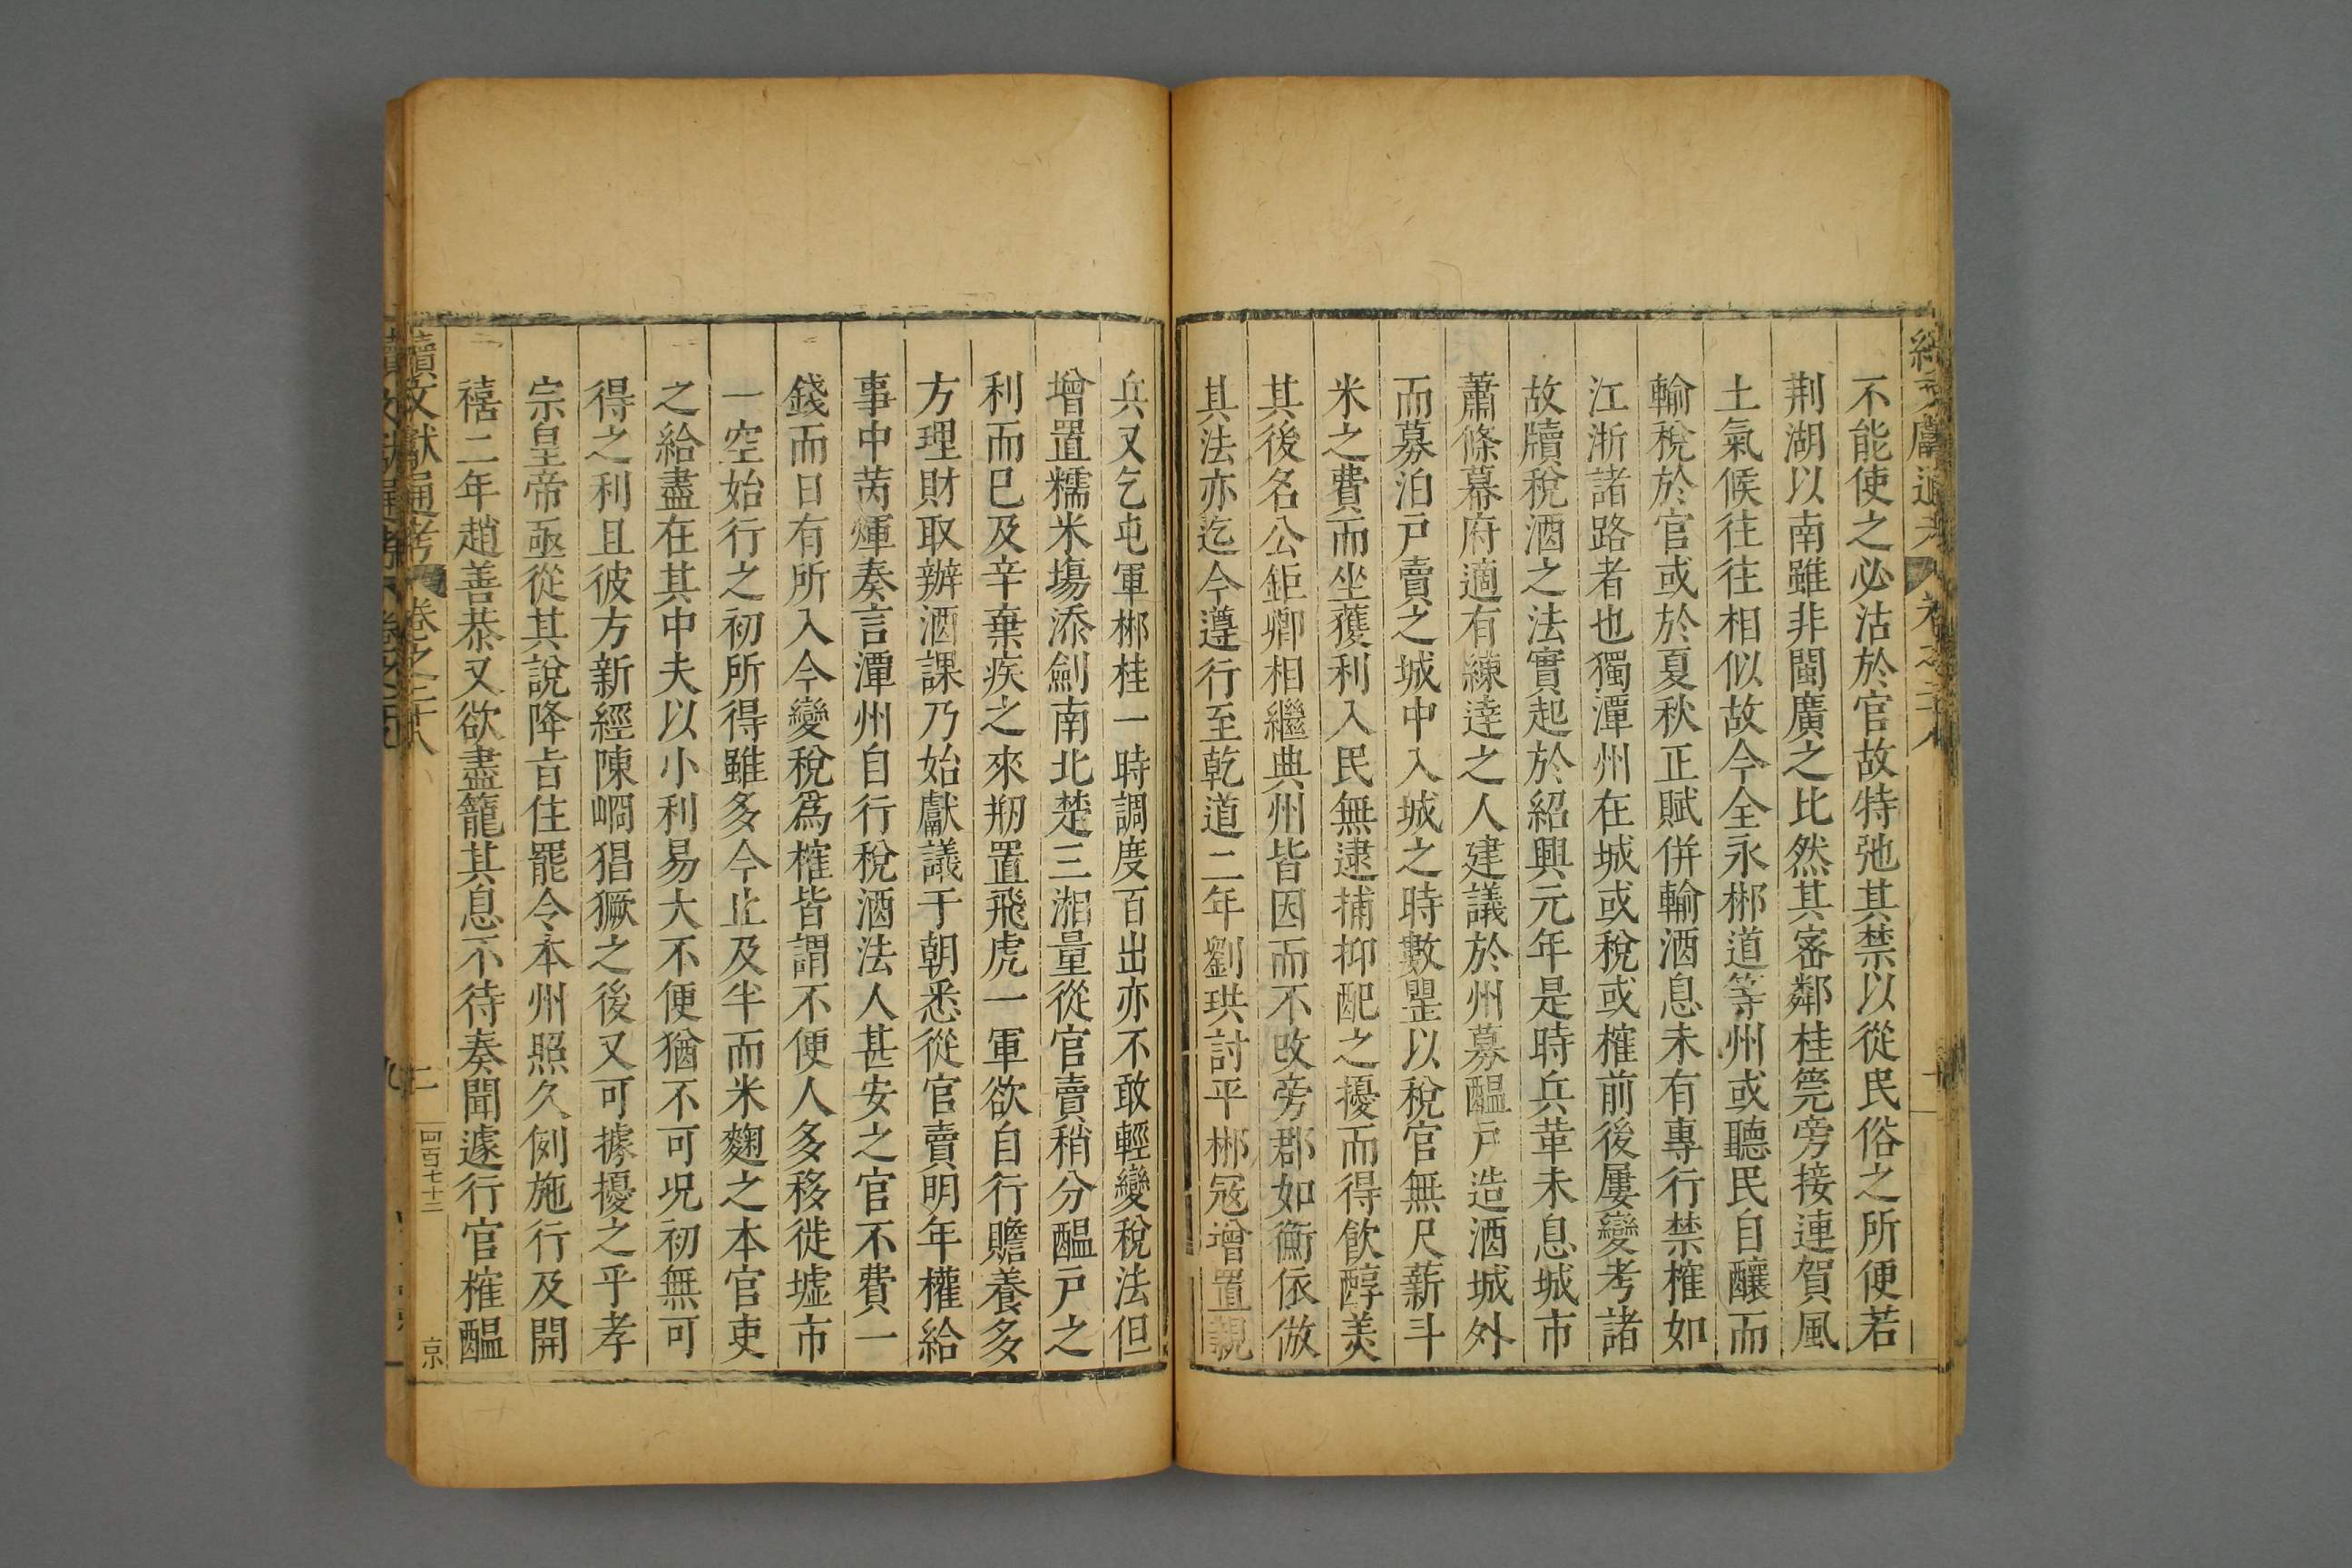 不能使之必沽於官故特弛其禁以從民俗之所便若
荆湖以南雖非閩廣之比然其密鄰桂筦旁接連賀風
土氣候往往相似故今全永郴道等州或聽民自釀而
輸稅於官或於夏秋正賦併輸酒息未有專行禁榷如
江浙諸路者也獨潭州在城或稅或榷前後屢變考諸
故牘稅酒之法實起於紹興元年是時兵革未息城市
蕭條幕府適有練達之人建議於州募醞戶造酒城外
而募泊戶賣之城中入城之時數甖以稅官無尺薪斗
米之費而坐獲利入民無逮捕抑配之擾而得飲醇美
其後名公鉅卿相繼典州皆因而不改旁郡如衡依倣
其法亦迄今遵行至乾道二年劉珙討平郴冦增置親
兵又乞屯軍郴桂一時調度百出亦不敢輕變稅法但
增置糯米塲添劍南北楚三湘量從官賣稍分醞戶之
利而已及辛棄疾之來剏置飛虎一軍欲自行贍養多
方理財取辦酒課乃始獻議于朝悉從官賣明年權給
事中芮煇奏言潭州自行稅酒法人甚安之官不費一
錢而日有所入今變稅爲榷皆謂不便人多移徙墟市
一空始行之初所得雖多今止及半而米麴之本官吏
之給盡在其中夫以小利易大不便猶不可况初無可
得之利且彼方新經陳峒猖獗之後又可據擾之乎孝
宗皇帝亟從其說降㫖住罷令本州照久例施行及開
禧二年趙善恭又欲盡籠其息不待奏聞遽行官榷醞
續文獻通考 卷之二十八 二 四百七十三 京